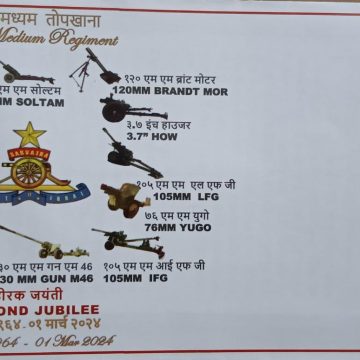 मध्यम तोपखाना
Medium Regiment
१२० एम एम ब्रांट मोटर
120MM BRANDT MOR
एम एम सोल्टम
MM SOLTAM
३.७ इंच हाउजर
3.7" HOW
SARVATRA
१०५ एम एम एल एफ जी
105MM LFG
७६ एम एम युगो
76MM YUGO
३० एम एम गन एम 46
30 MM GUN M46
१०५ एम एम आई एफ जी
105MM IFG
हीरक जयंती
OND JUBILEE
९६४-०१ मार्च २०२४
964 - 01 Mar 2024